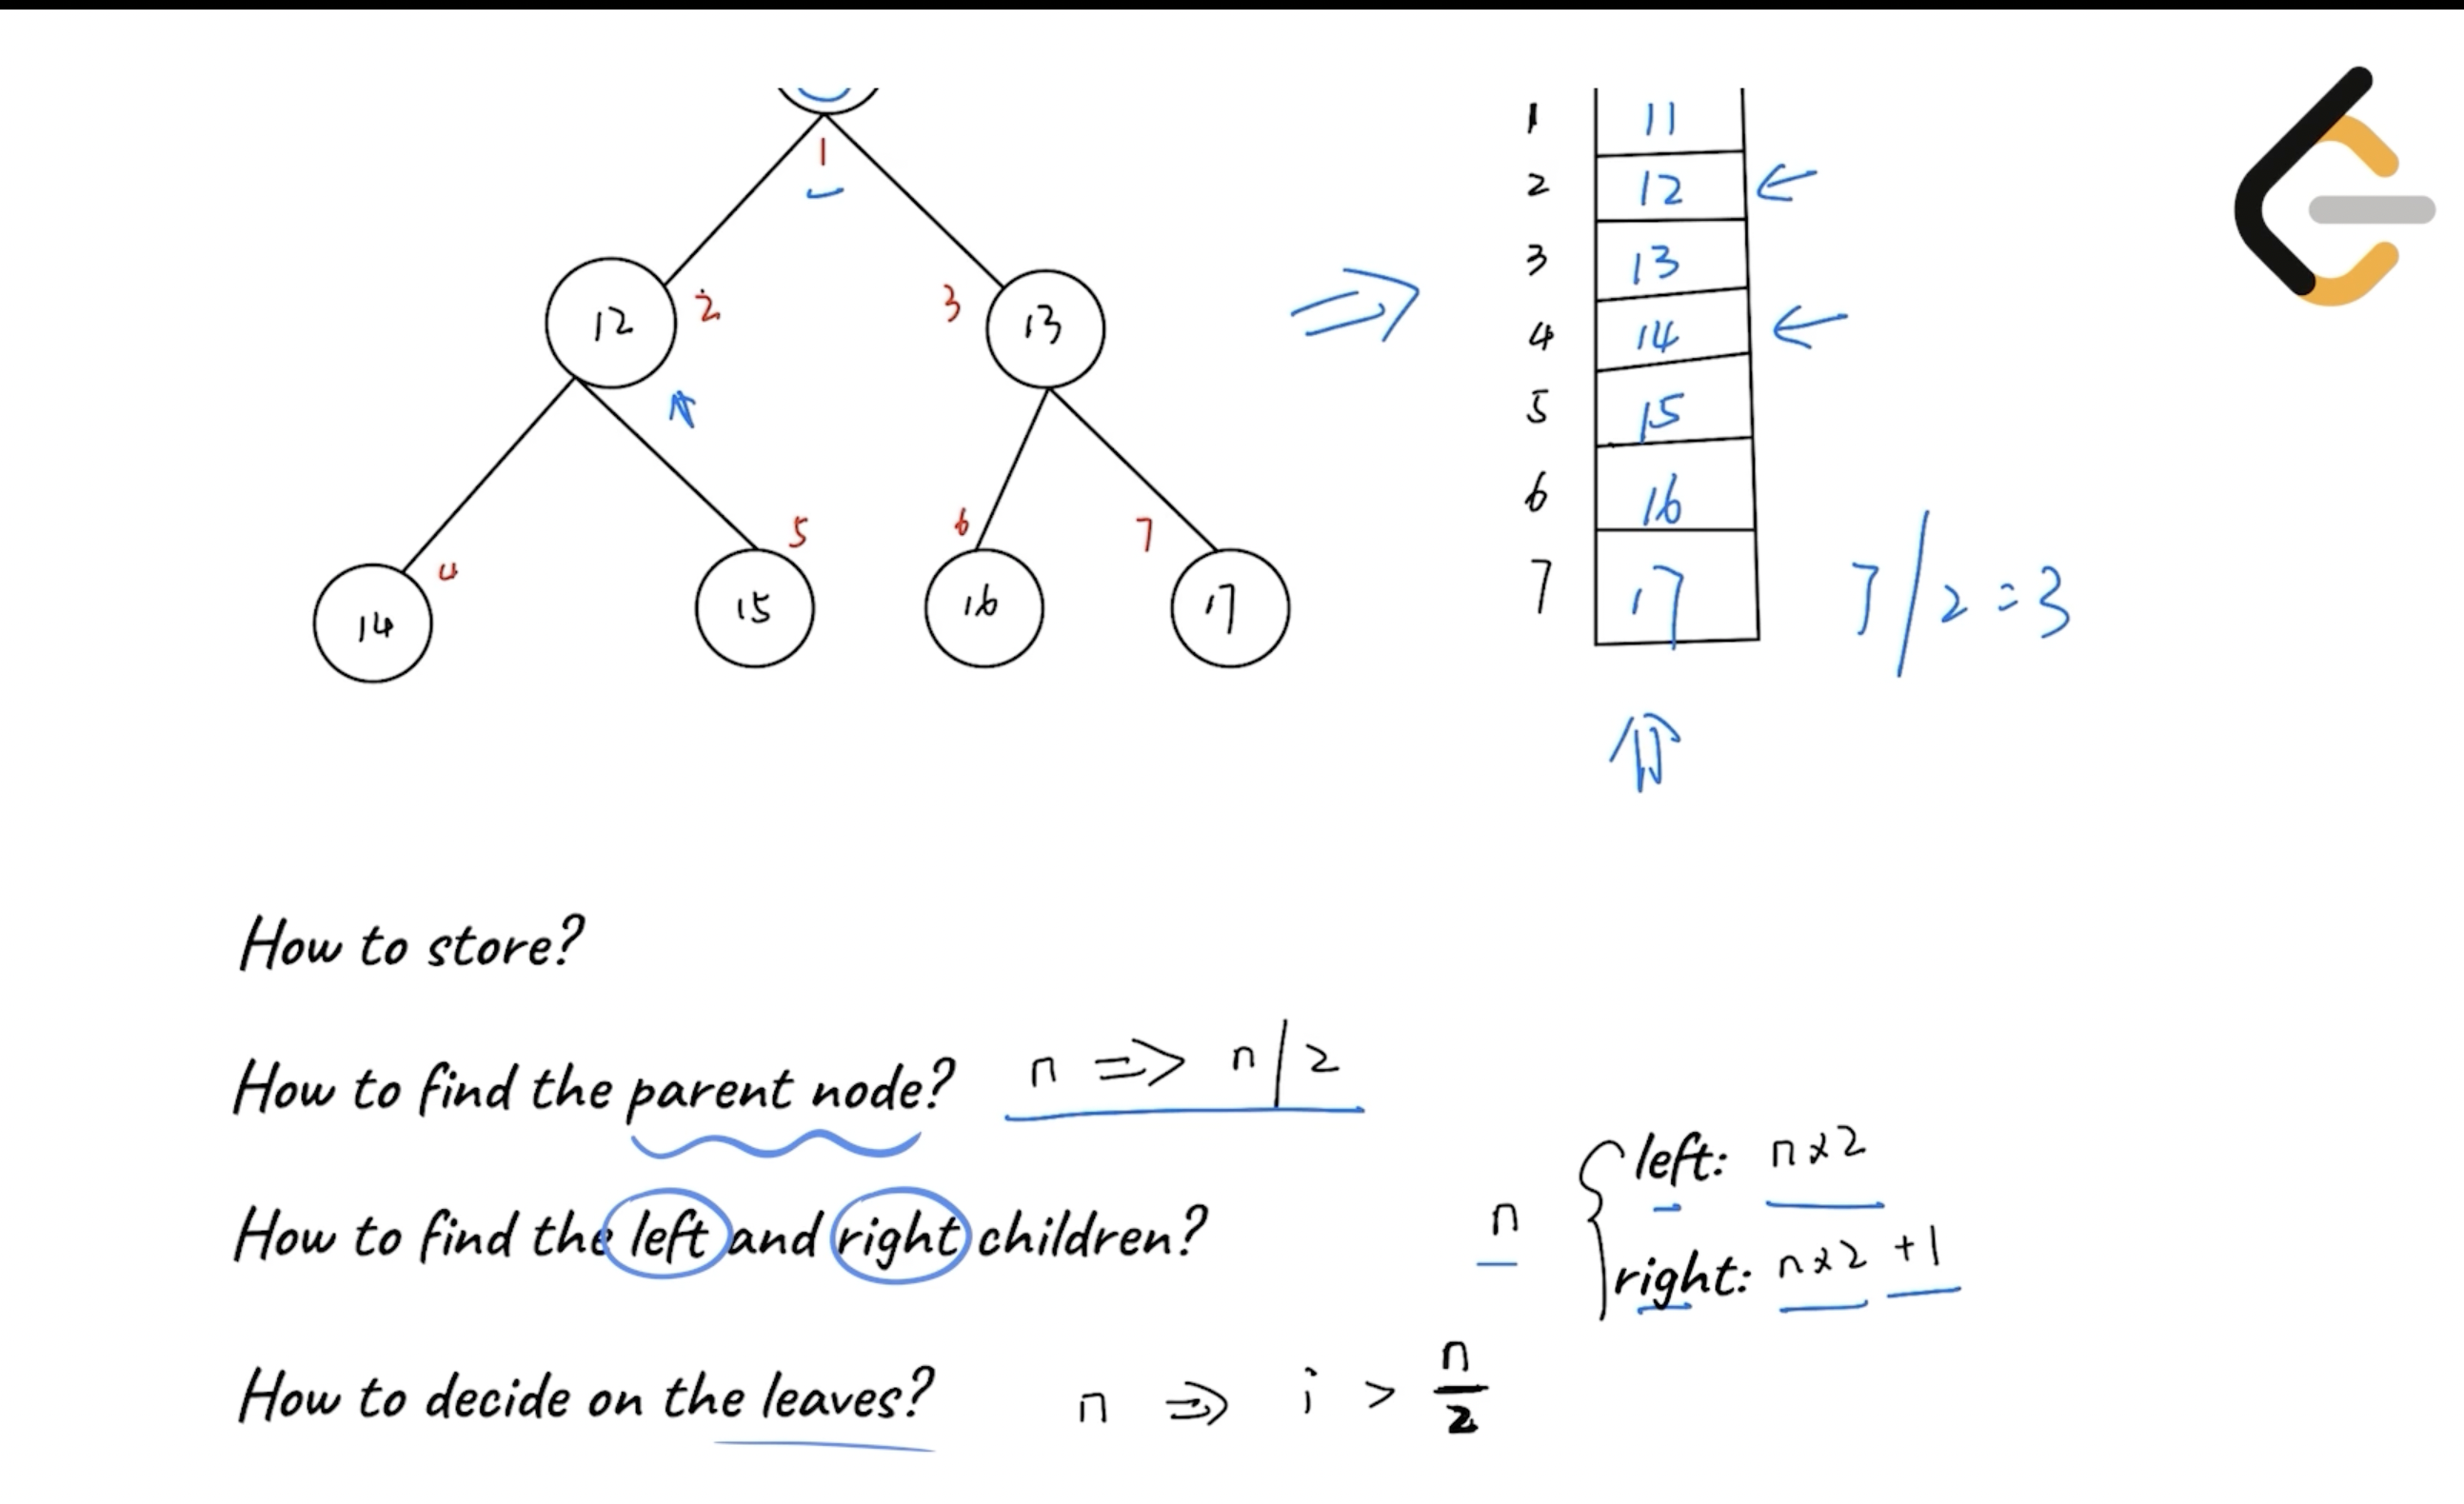 1
12
2
3
13
14
4
5
15
6
16
7
17
1 11
2 12
3 13
4 14
5 15
6 16
7 17
7/2=3
How to store?
How to find the parent node? n => n/2
How to find the left and right children? n
left: n×2
right: n×2 +1
How to decide on the leaves? n => i > n/2